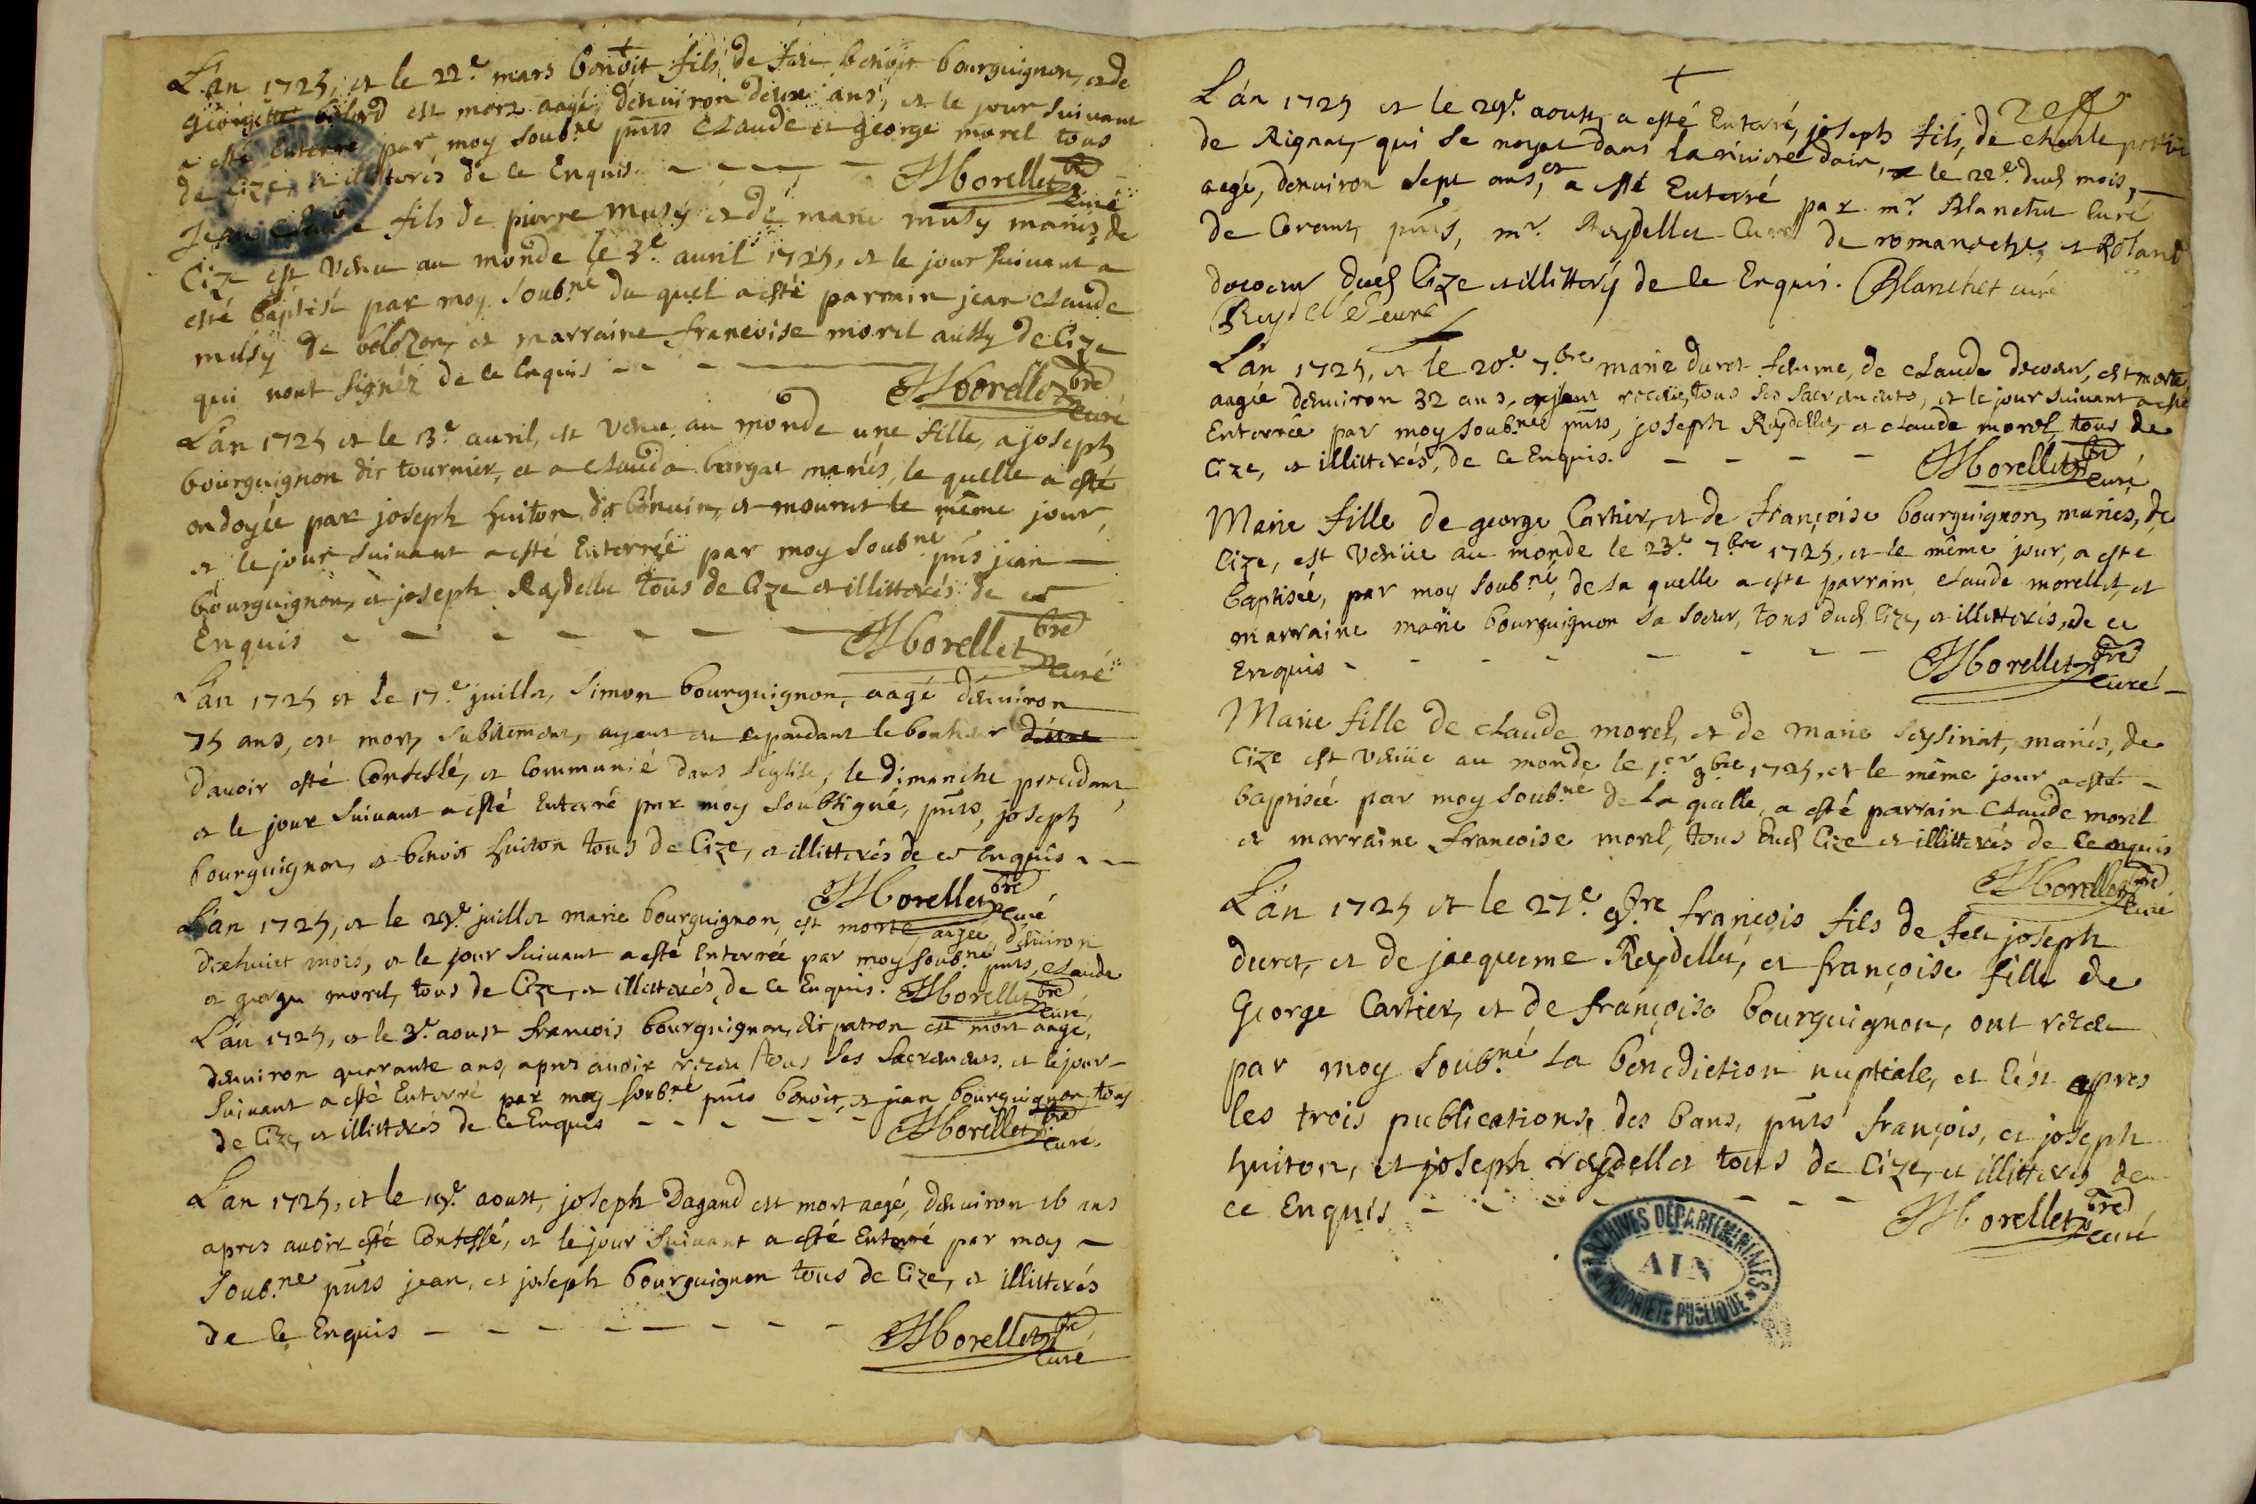 L'an 1725, et le 22e mars benoit fils de feu benoit bourguignon, et de
georgette est mort aagé, denviron deux ans, et le jour suivant
a esté enterré par moy soubné pnts claude et george morel tous
de cize, et illitterés de ce Enquis
HMorellet pbre curé
jean claude fils de pierre musy et de marie musy mariés, de
Cize est venu au monde le 3e avril 1725, et le jour suivant a
esté baptisé par moy soubné du quel a esté parrain jean claude
musy de bolozon, et marraine francoise morel aussy de Cize
qui nont signéz de ce Enquis
HMorellet pbre curé
L'an 1725 et le 13e avril, est venue au monde une fille, a joseph
bourguignon dit tournier, et a clauda bargat mariés, le quelle a esté
ondoyée par joseph huiton dit bénuin, et mourut le même jour,
et le jour suivant a esté Enterrée par moy soubné pnts jean
bourguignon, et joseph Reydellet tous de Cize et illitterés de ce
Enquis
HMorellet pbre curé
L'an 1725 et le 17e juillet, simon bourguignon, aagé denviron
75 ans, est mort, subitement, ayent eu cependant le bonheur
davoir esté Confessé, et Communié dans l'eglise, le dimanche precedant,
et le jour suivant a esté Enterré par moy soubsigné, pnts, joseph
bourguignon, et benoit huiton tous de Cize, et illitterés de ce Enquis
HMorellet pbre curé
L'an 1725, et le 29e juillet marie bourguignon, est morte, aagée, denviron
dixhuict mois, et le jour suivant a esté Enterrée par moy soubné pnts, claude
et george morel, tous de Cize, et illitterés, de ce Enquis. HMorellet pbre curé
L'an 1725, et le 3e aoust francois bourguignon, dit patron est mort aagé,
denviron quarante ans, apres avoir receu tous ses sacrements, et le jour
suivant a esté Enterré par moy soubné pnts benoit, et jean bourguignon tous
de Cize, et illitterés de ce Enquis
HMorellet pbre curé
L'an 1725, et le 19e aoust, joseph Dagand est mort aagé, denviron 16 ans
apres avoir esté Confessé, et le jour suivant a esté Enterré par moy
soubné pnts jean, et joseph bourguignon tous de Cize, et illitterés
de ce Enquis
HMorellet pbre curé
L'an 1725 et le 29e aoust, a esté Enterré, joseph fils, de charle
de Rignat, qui se noyat dans la riviere dain, le 22e dud mois,
aagé, denviron sept ans, et a esté Enterré par mr Blanchet Curé
de Corant, pnts, mr Reydellet Curé de romaneche, et Roland
decoeur dud Cize et illitteré de ce Enquis. Blanchet curé
Reydellet curé
L'an 1725, et le 20e 7bre marie duret femme, de claude decoeur, est morte,
aagée denviron 32 ans, ayant receu, tous ses sacrements, et le jour suivant a esté
Enterrée par moy soubné pnts, joseph Reydellet, et claude morel, tous de
Cize, et illitterés, de ce Enquis.
HMorellet pbre curé
Marie fille de george Cartier, et de françoise bourguignon, mariés, de
Cize, est venüe au monde le 23e 7bre 1725, et le même jour, a esté
baptisée, par moy soubné, de la quelle a esté parrain claude morellet, et
marraine marie bourguignon sa soeur, tous dud Cize, et illitterés, de ce
Enquis
HMorellet pbre curé
Marie fille de claude morel, et de marie seysiriat, mariés, de
Cize est venüe au monde le 1er 9bre 1725, et le même jour a esté
baptisée par moy soubné de la quelle, a esté parrain Claude morel
et marraine francoise morel, tous dud Cize et illitterés de ce enquis
HMorellet pbre curé
L'an 1725 et le 27e 9bre françois fils de feu joseph
duret, et de jacqueme Reydellet, et françoise fille de
George Cartier, et de françoise bourguignon, ont receu
par moy soubné la bénediction nuptiale, et c'est apres
les trois publications, des bans, pnts françois, et joseph
huiton, et joseph reydellet tous de Cize, et illitterés de
ce Enquis
HMorellet pbre curé
ARCHIVES DÉPARTEMENTALES
AIN
PROPRIÉTÉ PUBLIQUE